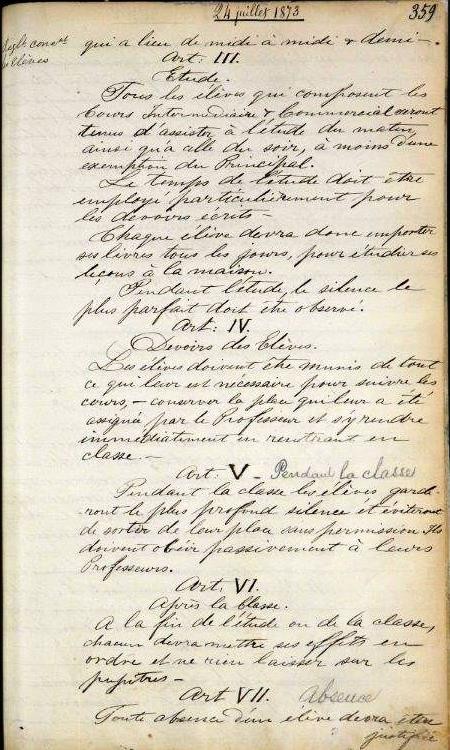 24 juillet 1873
359
Règlt concnt
élèves
qui a lieu de midi à midi & demi-.
Art: III.
Etude.
Tous les élèves qui composent les
Cours Intermédiaire & Commercial seront
tenus d'assister à l'étude du matin,
ainsi qu'à celle du soir, à moins d'une
exemption du Principal.
Le temps de l'étude doit être
employé particulièrement pour
les devoirs écrits -
Chaque élève devra donc emporter
ses livres tous les jours, pour étudier ses
leçons à la maison.
Pendant l'étude, le silence le
plus parfait doit être observé.
Art: IV.
Devoirs des Elèves.
Les élèves doivent être munis de tout
ce qui leur est nécessaire pour suivre les
cours, - conserver la place qui leur a été
assignée par le Professeur et s'y rendre
immédiatement en rentrant en
classe.-
Art: V- Pendant la classe
Pendant la classe les élèves garde-
-ront le plus profond silence et éviteront
de sortir de leur place sans permission. Ils
doivent obéir passivement à leurs
Professeurs.
Art: VI.
Après la Classe.
A la fin de l'étude ou de la classe,
chacun devra mettre ses effets en
ordre et ne rien laisser sur les
pupitres -
Art VII. Absence
Toute absence d'un élève devra être
justifiée